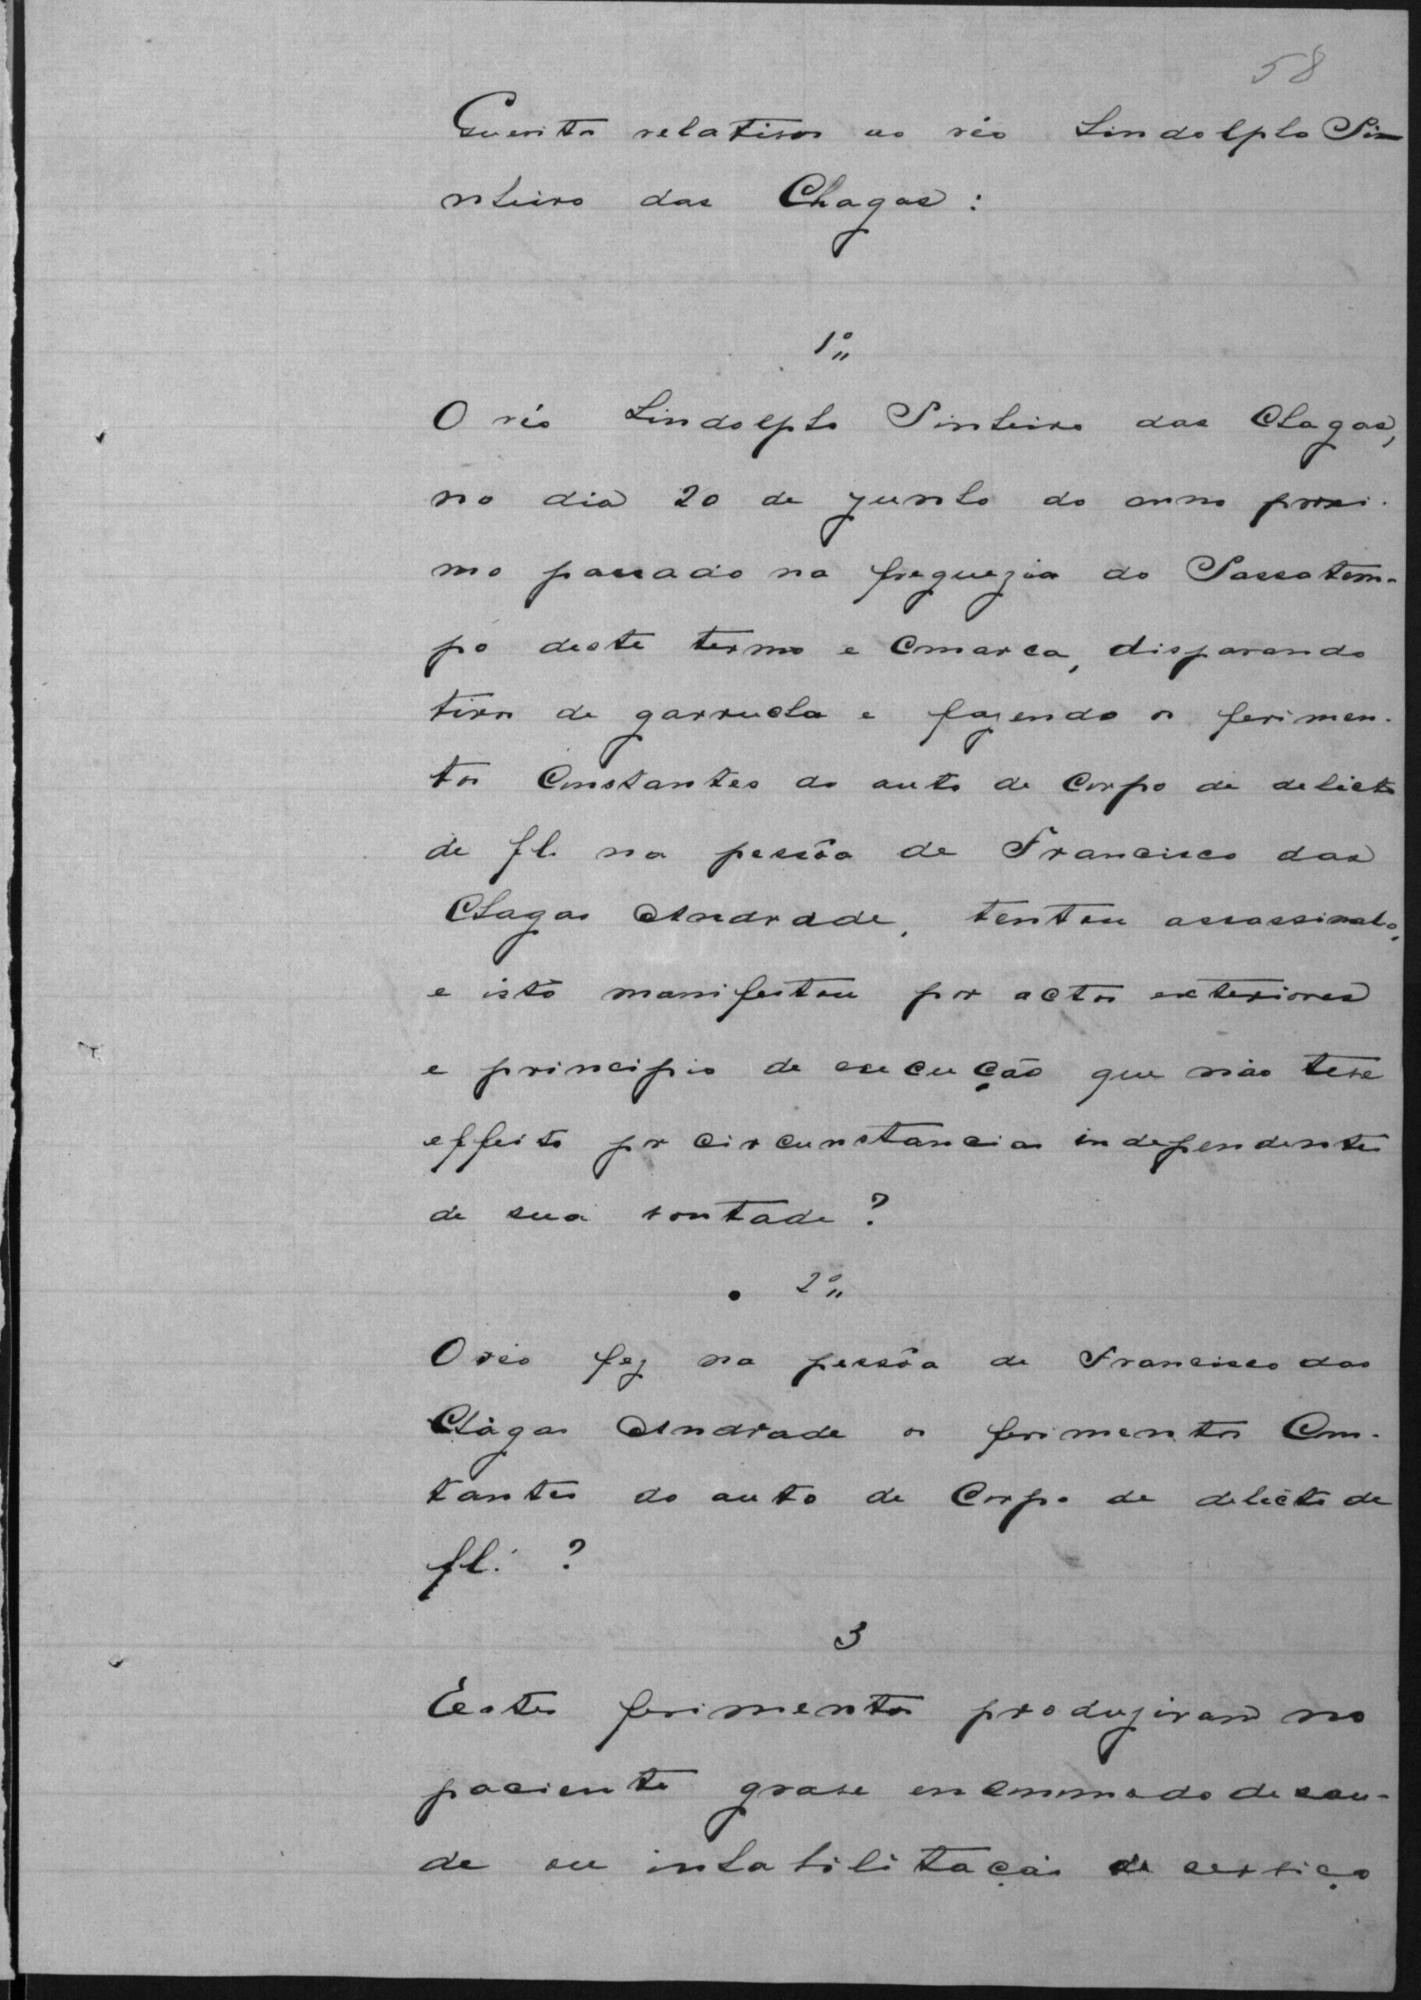 58
Quesitos relativos ao réo Lindolpho Pi-
nheiro das Chagas:
1º,,
O réo Lindolpho Pinheiro das Chagas,
no dia 20 de Junho do anno proxi-
mo passado na freguezia do Passatem-
po deste termo e comarca, disparando
tiros de garrucha e fazendo os ferimen-
tos constantes do auto de corpo de delicto
de fl. na pessôa de Francisco das
Chagas Andrade, tentou assassinal-o,
e isto manifestou por actos exteriores
e principio de execução que não teve
effeito por circunstancias independentes
de sua vontade?
2º,,
O réo fez na pessôa de Francisco das
Chagas Andrade os ferimentos Cons-
tantes do auto de Corpo de delicto de
fl. ?
3
Éstes ferimentos produziram no
paciente grave encommodo de sau-
de ou inhabilitação de serviço